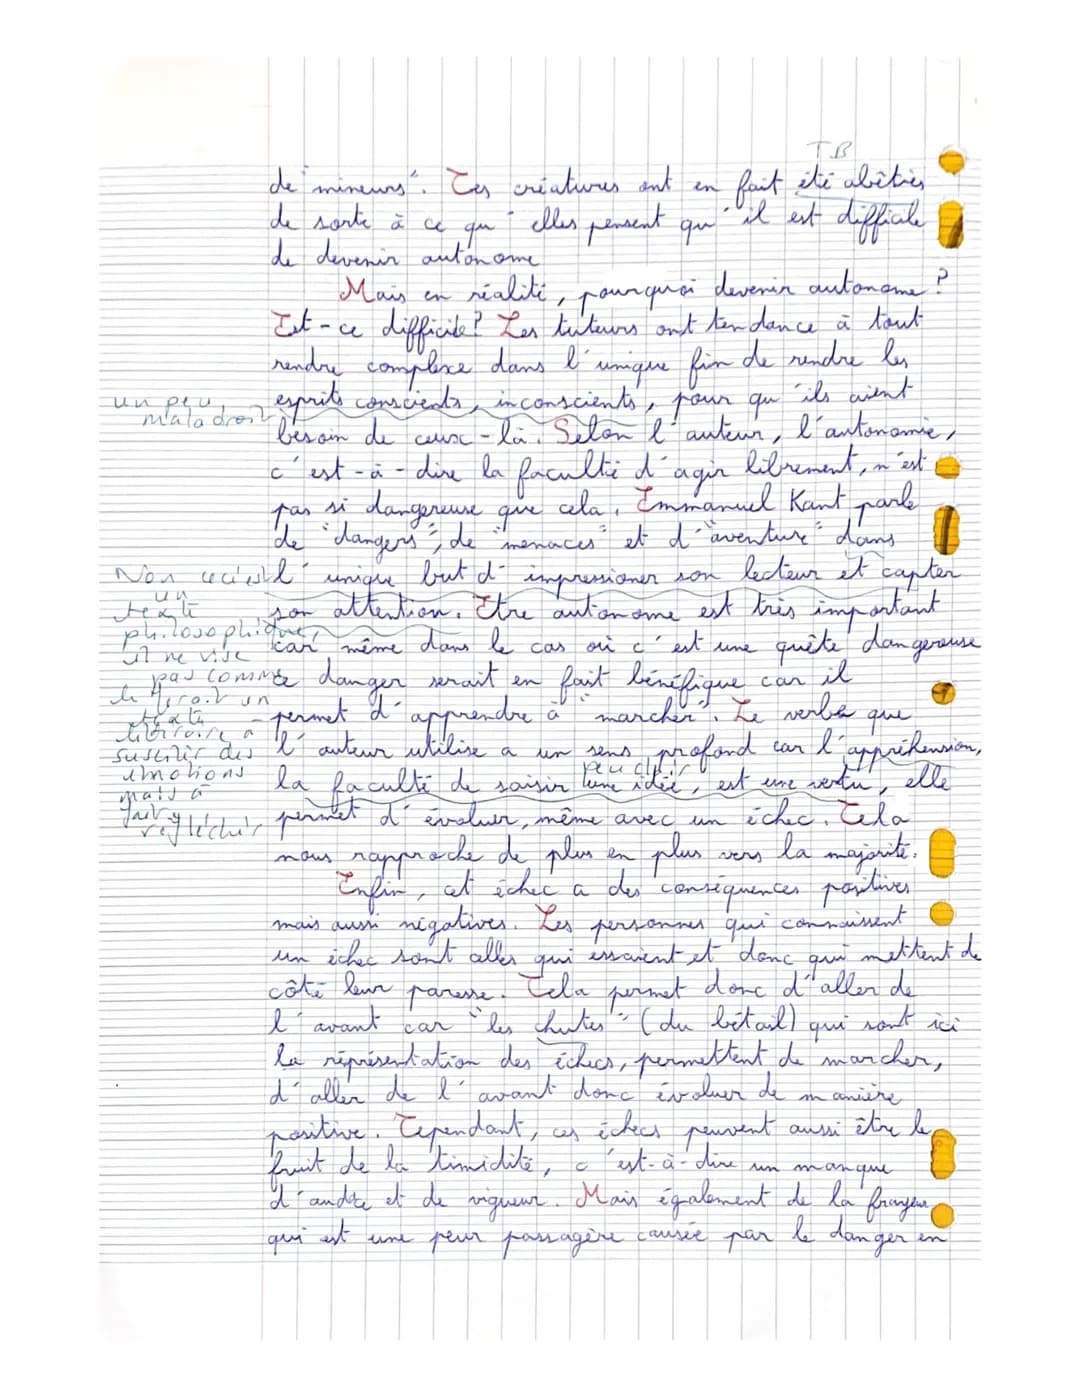 TB
de "mineurs". Ces créatures ont en fait été abêties
de sorte à ce qu'elles pensent qu'il est difficile
de devenir autonome
Mais en réalité, pourquoi devenir autonome?
Est-ce difficile? Les tuteurs ont tendance à tout
rendre complexe dans l'unique fin de rendre les
un peu
maladroit
esprits conscients, inconscients, pour qu'ils aient
besoin de ceux-là. Selon l'auteur, l'autonomie,
c'est-à-dire la faculté d'agir librement, n'est
pas si dangereuse que cela. Emmanuel Kant parle
de "dangers", de "menaces" et d'"aventure" dans
l'unique but d'impressioner son lecteur et capter
son attention. Etre autonome est très important
car, même dans le cas où c'est une quête dangereuse
ce danger serait en fait bénéfique car il
permet d'apprendre à "marcher". Le verbe que
l'auteur utilise a un sens profond car l'appréhension,
peu clair
la faculté de saisir une idée, est une vertu, elle
permet d'évoluer, même avec un échec. Cela
nous rapproche de plus en plus vers la majorité.
Non ceci est
un
texte
philosophique,
il ne vise
pas comme
le ferait un
texte
littéraire à
susciter des
émotions
mais à
faire
réfléchir
Enfin, cet échec a des conséquences positives
mais aussi négatives. Les personnes qui connaissent
un échec sont celles qui essaient et donc qui mettent de
côté leur paresse. Cela permet donc d'aller de
l'avant car "les chutes" (du bétail) qui sont ici
la représentation des échecs, permettent de marcher,
d'aller de l'avant donc évoluer de manière
positive. Cependant, ces échecs peuvent aussi être le
fruit de la timidité, c'est-à-dire un manque
d'audace et de vigueur. Mais également de la frayeur
qui est une peur passagère causée par le danger en